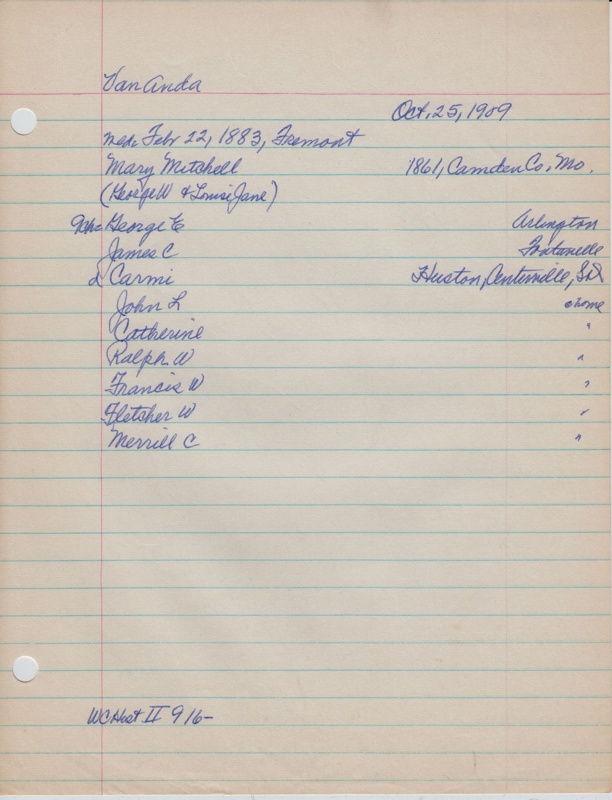 Van Anda
Oct. 25, 1909
mar. Febr 22, 1883, Fremont
Mary Mitchell 1861, Camden Co. Mo.
(George W & Louise Jane)
9ch = George E Arlington
James C Fontanelle
d Carmi Huston, Centerville, Sd
John L @ home
Catherine "
Ralph W "
Francis W "
Fletcher W "
Merrill C "
WC Hist II 916-